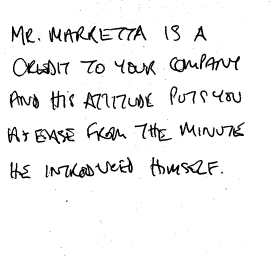 MR. MARRETTA IS A
CREDIT TO YOUR COMPANY
AND HIS ATTITUDE PUTS YOU
AT EASE FROM THE MINUTE
HE INTRODUCED HIMSELF.